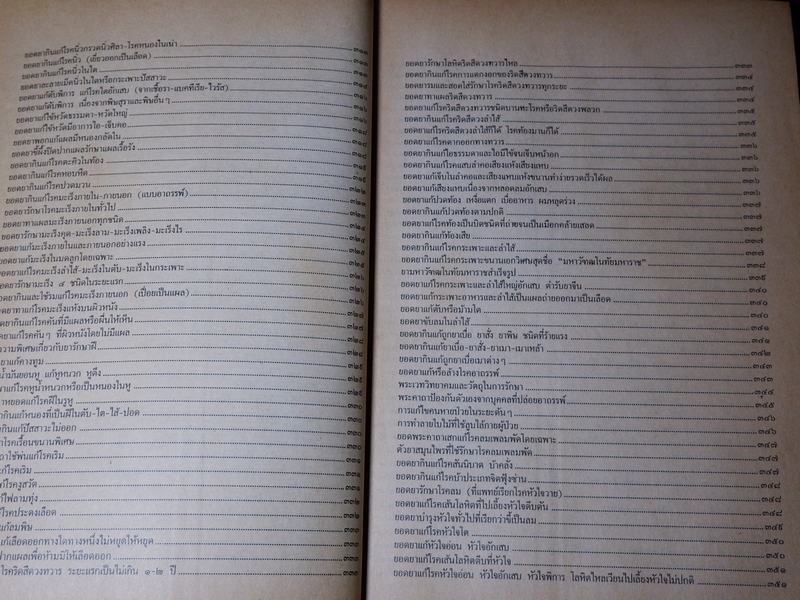 ยอดยากินแก้โรคนิ่วกรวดนิ่วศิลา-โรคหนองในเน่า
ยอดยากินแก้โรคนิ่ว (เยี่ยวออกเป็นเลือด)
ยอดยากินแก้โรคนิ่วในไต
ยอดยาละลายเม็ดนิ่วในไตหรือกระเพาะปัสสาวะ
ยอดยาแก้ตับพิการ แก้โรคไตอักเสบ (จากเชื้อรา-แบคทีเรีย-ไวรัส)
ยอดยาแก้ตับพิการ เนื่องจากพิษสุราและพิษอื่นๆ
ยอดยาแก้ไข้หวัดธรรมดา-หวัดใหญ่
ยอดยาแก้ไข้หวัดมีอาการไอ-เจ็บคอ
ยอดยาพอกแก้แผลมีหนองกลัดใน
ยอดยาขี้ผึ้งปิดปากแผลรักษาแผลเรื้อรัง
ยอดยากินแก้โรคตะคิวในท้อง
ยอดยากินแก้โรคหอบหืด
ยอดยากินแก้โรคปวดมวน
ยอดยากินแก้โรคมะเร็งภายใน-ภายนอก (แบบอาถรรพ์)
ยอดยารักษาโรคมะเร็งภายในทั่วไป
ยอดยาทาแผลมะเร็งภายนอกทุกชนิด
ยอดยารักษามะเร็งคุด-มะเร็งลาม-มะเร็งเพลิง-มะเร็งไร
ยอดยาแก้มะเร็งภายในและภายนอกอย่างแรง
ยอดยาแก้มะเร็งในมดลูกโดยเฉพาะ
ยอดยาแก้โรคมะเร็งลำไส้-มะเร็งในตับ-มะเร็งในกระเพาะ
ยอดยารักษามะเร็ง ๔ ชนิดในระยะแรก
ยากินและใช้รมแก้โรคมะเร็งภายนอก (เปื่อยเป็นแผล)
ยาทาแก้โรคมะเร็งแห้งบนผิวหนัง
ยากินแก้โรคคันที่มีแผลหรือผื่นให้เห็น
ยาแก้โรคคันๆ ที่ผิวหนังโดยไม่มีแผล
ความพิเศษเกี่ยวกับยารักษาฝี
ยาแก้คางทูม
น้ำมันยอนหู แก้หูหนวก หูตึง
แก้โรคหูน้ำหนวกหรือเป็นหนองในหู
ยาหยอดแก้โรคฝีในรูหู
กินแก้หนองที่เป็นฝีในตับ-ไต-ไส้-ปอด
กินแก้ปัสสาวะไม่ออก
โรคเรื้อนขนานพิเศษ
ยาใช้พ่นแก้โรคเริม
แก้โรคเริม
แก้โรคงูสวัด
แก้ไฟลามทุ่ง
โรคประดงเลือด
แก้ลมพิษ
แก้เลือดออกทางใดทางหนึ่งไม่หยุดให้หยุด
ปากแผลเพื่อห้ามมิให้เลือดออก
โรคริดสีดวงทวาร ระยะแรกเป็นไม่เกิน ๑-๒ ปี ๓๓๓
ยอดยารักษาโลหิตริดสีดวงทวารไหล ๓๓๓
ยอดยากินแก้โรคการแตกงอกของริดสีดวงทวาร ๓๓๔
ยอดยารมและสอดไส้รักษาโรคริดสีดวงทวารทุกระยะ ๓๓๔
ยอดยาทาแผลริดสีดวงทวาร ๓๓๔
ยอดยาแก้โรคริดสีดวงทวารชนิดบานทะโรคหรือริดสีดวงพลวก ๓๓๕
ยอดยากินแก้โรคริดสีดวงลำไส้ ๓๓๕
ยอดยาแก้โรคริดสีดวงลำไส้ก็ได้ โรคท้องมานก็ได้ ๓๓๕
ยอดยาแก้โรคดากออกทางทวาร ๓๓๖
ยอดยากินแก้ไอธรรมดาและไอมีไข้จนเจ็บหน้าอก ๓๓๖
ยอดยากินแก้โรคแสบลำคอเสียงแห้งเสียงแหบ ๓๓๖
ยอดยาแก้เจ็บในลำคอและเสียงแหบแห้งขนานทำง่ายรวดเร็วได้ผล ๓๓๖
ยอดยาแก้เสียงแหบเนื่องจากหลอดลมอักเสบ ๓๓๖
ยอดยาแก้ปวดท้อง เหงื่อแตก เบื่ออาหาร ผมหลุดร่วง ๓๓๗
ยอดยากินแก้ปวดท้องตามปกติ ๓๓๗
ยอดยาแก้โรคท้องเป็นบิดชนิดที่ถ่ายจนเป็นเมือกคล้ายเสลด ๓๓๗
ยอดยากินแก้ท้องเสีย ๓๓๗
ยอดยากินแก้โรคกระเพาะและลำไส้ ๓๓๗
ยอดยากินแก้โรคกระเพาะขนานเอกวิเศษสุดชื่อ “มหาวัฑฒในทัยมหาราช” ๓๓๘
ยามหาวัฑฒในทัยมหาราชสำเร็จรูป ๓๓๙
ยอดยากินแก้โรคกระเพาะและลำไส้ใหญ่อักเสบ ตำรับยาจีน ๓๔๐
ยอดยาแก้กระเพาะอาหารและลำไส้เป็นแผลถ่ายออกมาเป็นเลือด ๓๔๐
ยอดยากินแก้ตับหรือม้ามโต ๓๔๐
ยอดยาขับลมในลำไส้ ๓๔๑
ยอดยากินแก้ถูกยาเบื่อ ยาสั่ง ยาพิษ ชนิดที่ร้ายแรง ๓๔๑
ยอดยากินแก้ยาเบื่อ-ยาสั่ง-ยาเมา-เมาเหล้า ๓๔๒
ยอดยากินแก้ถูกยาเบื่อเมาต่างๆ ๓๔๓
ยอดยาแก้หรือล้างโรคอาถรรพ์ ๓๔๓
พระเวทวิทยาคมและวัตถุในการรักษา ๓๔๔
พระคาถาป้องกันตัวเองจากบุคคลที่ปล่อยอาถรรพ์ ๓๔๕
การแก้ไขคนหายป่วยในระยะต้นๆ ๓๔๖
การทำลายใบไม้ที่ใช้ลูบไล้กายผู้ป่วย ๓๔๖
ยอดพระคาถาเสกแก้โรคลมเพลมพัดโดยเฉพาะ ๓๔๗
ตัวยาสมุนไพรที่ใช้รักษาโรคลมเพลมพัด ๓๔๗
ยอดยากินแก้โรคสันนิบาต บ้าคลั่ง ๓๔๗
ยอดยากินแก้โรคบ้าประเภทจิตฟุ้งซ่าน ๓๔๘
ยอดยารักษาโรคลม (ที่แพทย์เรียกโรคหัวใจวาย) ๓๔๘
ยอดยาแก้โรคเส้นโลหิตที่ไปเลี้ยงหัวใจตีบตัน ๓๔๘
ยอดยาบำรุงหัวใจทั่วไปที่เรียกว่าขี้เป็นลม ๓๔๙
ยอดยาแก้โรคหัวใจโต ๓๕๐
ยอดยาแก้หัวใจอ่อน หัวใจอักเสบ ๓๕๐
ยอดยาแก้โรคเส้นโลหิตตีบที่หัวใจ ๓๕๑
ยอดยาแก้โรคหัวใจอ่อน หัวใจอักเสบ หัวใจพิการ โลหิตไหลเวียนไปเลี้ยงหัวใจไม่ปกติ ๓๕๑